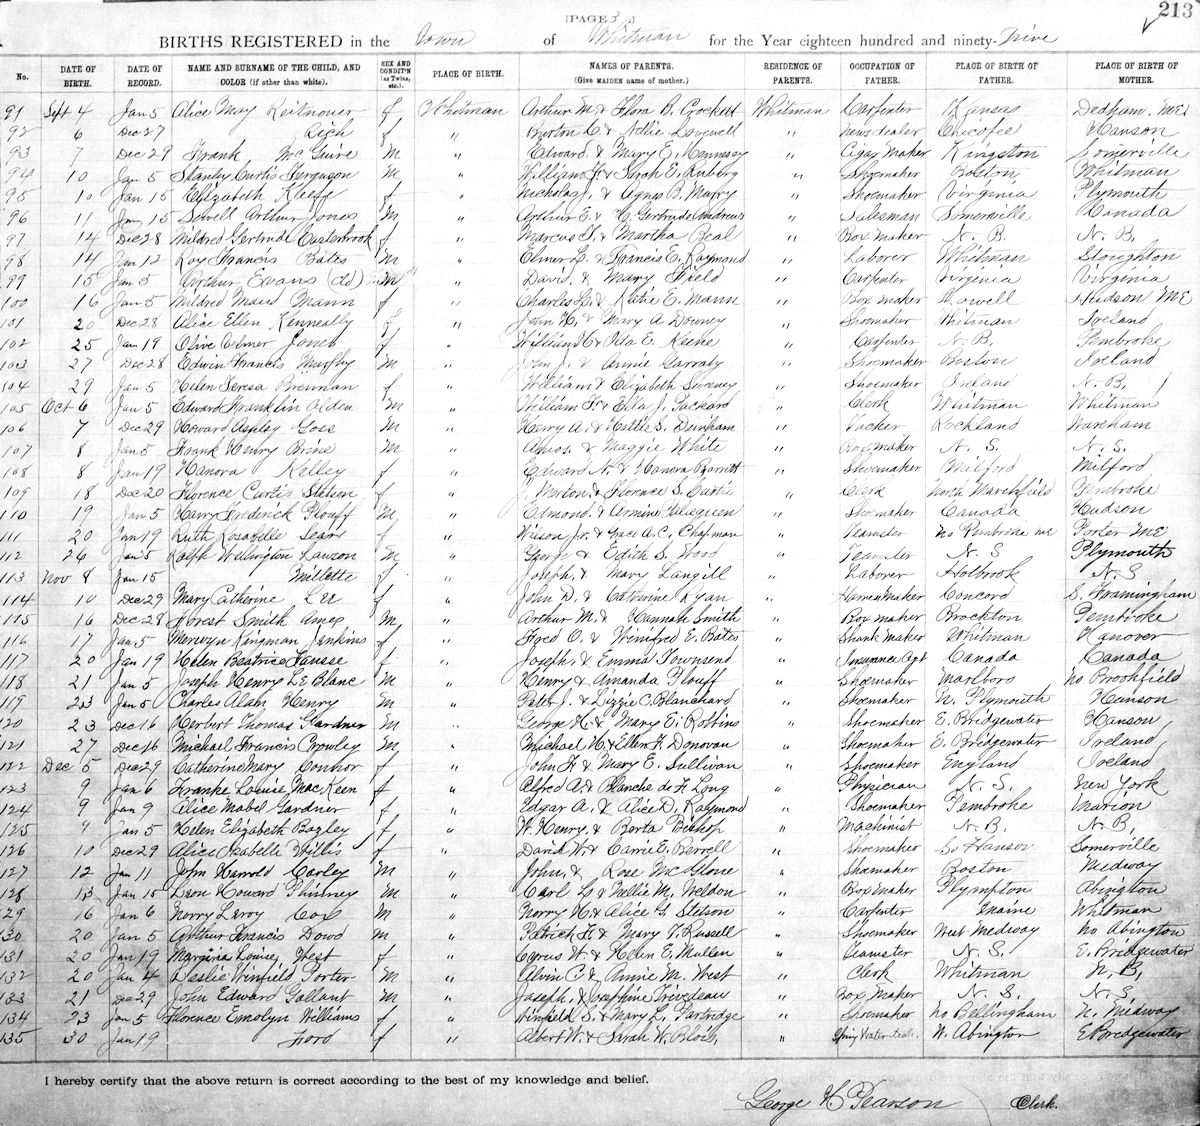 [PAGE 3.]
213
BIRTHS REGISTERED in the Town of Whitman for the Year eighteen hundred and ninety-Five
No. DATE OF BIRTH. DATE OF RECORD. NAME AND SURNAME OF THE CHILD, AND COLOR (if other than white). SEX AND CONDIT'N (as Twins, etc.). PLACE OF BIRTH. NAMES OF PARENTS. (Give MAIDEN name of mother.) RESIDENCE OF PARENTS. OCCUPATION OF FATHER. PLACE OF BIRTH OF FATHER. PLACE OF BIRTH OF MOTHER.
91 Sept 4 Jan 5 Alice May f Whitman Arthur M. & Flora B. Crockett Whitman Carpenter Kansas Dedham, ME
92 6 Dec 27 Rich f " Burton L. & Nellie Lovewell " News dealer Chicopee Hanson
93 7 Dec 29 Frank McGuire M " Edward & Mary E. Hennessey " Cigar Maker Kingston Somerville
94 10 Jan 5 Stanley Curtis Ferguson M " William H. & Sarah E. " Shoemaker Boston Whitman
95 10 Jan 15 Elizabeth f " Nicholas J. & Agnes B. Murry " Shoemaker Virginia Plymouth
96 11 Jan 15 Lowell Arthur Jones M " Arthur E. & H. Gertrude Andrews " Salesman Somerville Canada
97 14 Dec 28 Mildred Gertrude Easterbrook f " Marcus F. & Martha Beal " Box Maker N. B. N. B.
98 14 Jan 12 Roy Francis Bates M " Elmer L. & Francis E. Raymond " Laborer Whitman Stoughton
99 15 Jan 5 Arthur Evans (Cd) M " David. & Mary Field " Carpenter Virginia Virginia
100 16 Jan 5 Mildred Maud Mann f " Charles L. & Katie E. Mann " Box maker Lowell Hudson ME
101 20 Dec 28 Alice Ellen Kenneally f " John H. & Mary A Downey " Shoemaker Whitman Ireland
102 25 Jan 19 Olive Elmer Jones f " William C. & Ida E. Keene " Carpenter N. B. Pembroke
103 27 Dec 28 Edwin Francis Murphy M " John J. & Annie Garraty " Shoemaker Boston Ireland
104 29 Jan 5 Helen Teresa Brennan f " William & Elizabeth Sweeney " Shoemaker Ireland N. B.
105 Oct 6 Jan 5 Edward Franklin Alden M " William F. & Ella J. Packard " Clerk Whitman Whitman
106 7 Dec 29 Howard Ashley Goss M " Harry A. & Hattie S. Dunham " Packer Rockland Wareham
107 8 Jan 5 Frank Henry Brine M " Amos. & Maggie White " Box maker N. S. N. S.
108 8 Jan 19 Hanora Kelley f " Edward N. & Hanora Barrett " Shoemaker Milford Milford
109 18 Dec 20 Florence Curtis Stetson f " J. Morton & Florence S. Curtis " Clerk North Marshfield Pembroke
110 19 Jan 5 Harry Frederick Plouff M " Edmond. & Ermine " Shoemaker Canada Hudson
111 20 Jan 19 Ruth Rosabelle Sears f " Wilson Jr. & Grace A. C. Chapman " Teamster No Pembroke me Porter ME
112 26 Jan 5 Ralph Wellington Lawson M " George & Edith S. Wood " Teamster N. S Plymouth
113 Nov 8 Jan 15 Millette f " Joseph. & Mary Langill " Laborer Holbrook N. S
114 10 Dec 29 Mary Catherine Lee f " John D. & Catherine Ryan " HarnessMaker Concord S. Framingham
115 16 Dec 28 Forest Smith Ames M " Arthur M. & Hannah Smith " Box maker Brockton Pembroke
116 17 Jan 5 Merwyn Kingman Jenkins f " Fred O. & Winifred E. Bates " Shank Maker Whitman Hanover
117 20 Jan 19 Helen Beatrice Fausse f " Joseph. & Emma Townsend " Insurance Agt Canada Canada
118 21 Jan 5 Joseph Henry LeBlanc M " Henry & Amanda Plouff " Shoemaker Marlboro No Brookfield
119 23 Jan 5 Charles Alan Henry M " Peter J. & Lizzie C. Blanchard " Shoemaker N. Plymouth Hanson
120 23 Dec 16 Herbert Thomas Gardner M " George H. & Mary E. Robbins " Shoemaker E. Bridgewater Hanson
121 27 Dec 16 Michael Francis Crowley M " Michael H. & Ellen F. Donovan " Shoemaker E. Bridgewater Ireland
122 Dec 5 Dec 29 Catherine Mary Connor f " John H. & Mary E. Sullivan " Shoemaker England Ireland
123 9 Jan 6 Franke Louise MacKeen f " Alfred A. & Blanche de F. Long " Physician N. S. New York
124 9 Jan 9 Alice Mabel Gardner f " Edgar A. & Alice D. Raymond " Shoemaker Pembroke Marion
125 9 Jan 5 Helen Elizabeth Bagley f " W. Henry. & Berta Bishop " Machinist N. B. N. B.
126 10 Dec 29 Alice Isabelle Willis f " David W. & Carrie E. Berrell " Shoemaker So Hanson Somerville
127 12 Jan 11 John Harrold Carley M " John, & Rose McGlone " Shoemaker Boston Medway
128 13 Jan 15 Deon Howard Phinney M " Carl L. & Nellie M. Weldon " Box maker Plympton Abington
129 16 Jan 6 Norry Leroy Cox M " Norry H. & Alice G. Stetson " Carpenter Maine Whitman
130 20 Jan 5 Arthur Francis Dowd M " Patrick H. & Mary V. Russell " Shoemaker West Medway No Abington
131 20 Jan 19 Louise, West f " Cyrus W. & Helen E. Mullen " Teamster N. S. E. Bridgewater
132 20 Jan 4 Leslie Winfield Porter M " Alvin C. & Annie M. West " Clerk Whitman N. B.
133 21 Dec 29 John Edward Gallant M " Joseph, & Josephine Trivedeau " Box Maker N. S. N. S.
134 23 Jan 5 Florence Emolyn Williams f " Winfield S. & Mary L. Partridge " Shoemaker No Bellingham N. Midway
135 30 Jan 19 Ford f " Albert W. & Sarah W. Blois, " Spring Water deal. W. Abington E Bridgewater
I hereby certify that the above return is correct according to the best of my knowledge and belief.
George H. Pearson Clerk.